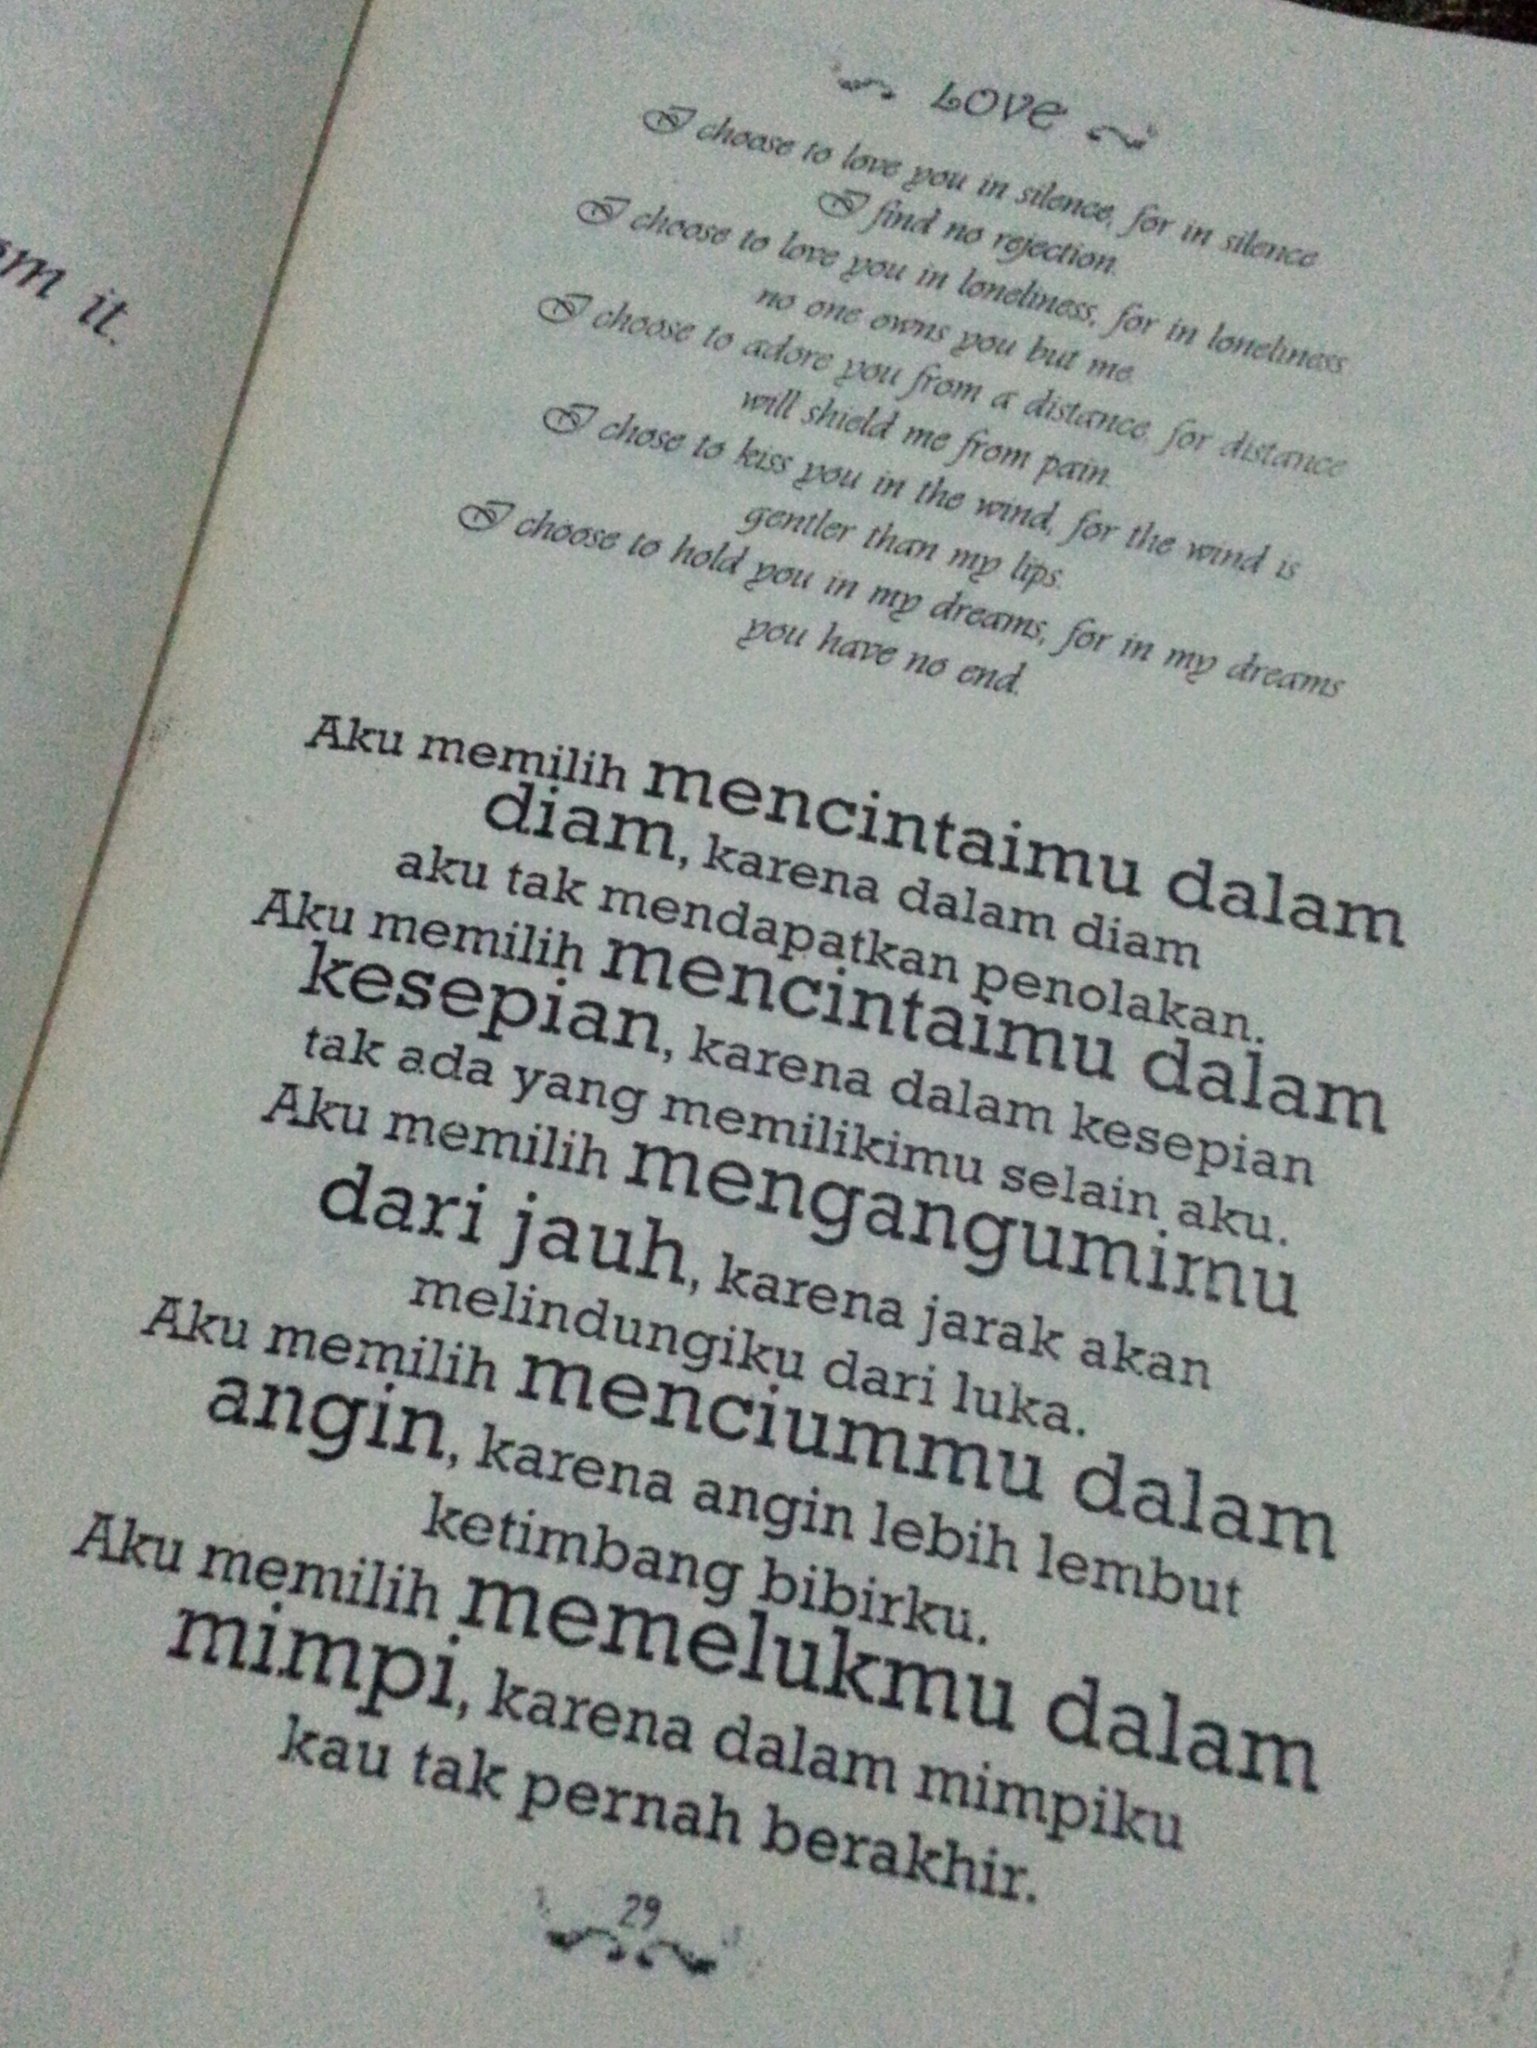 m it.
Love
I choose to love you in silence, for in silence
I find no rejection.
I choose to love you in loneliness, for in loneliness
no one owns you but me.
I choose to adore you from a distance, for distance
will shield me from pain.
I chose to kiss you in the wind, for the wind is
gentler than my lips.
I choose to hold you in my dreams, for in my dreams
you have no end.
Aku memilih mencintaimu dalam
diam, karena dalam diam
aku tak mendapatkan penolakan.
Aku memilih mencintaimu dalam
kesepian, karena dalam kesepian
tak ada yang memilikimu selain aku.
Aku memilih mengangumimu
dari jauh, karena jarak akan
melindungiku dari luka.
Aku memilih menciummu dalam
angin, karena angin lebih lembut
ketimbang bibirku.
Aku memilih memelukmu dalam
mimpi, karena dalam mimpiku
kau tak pernah berakhir.
29